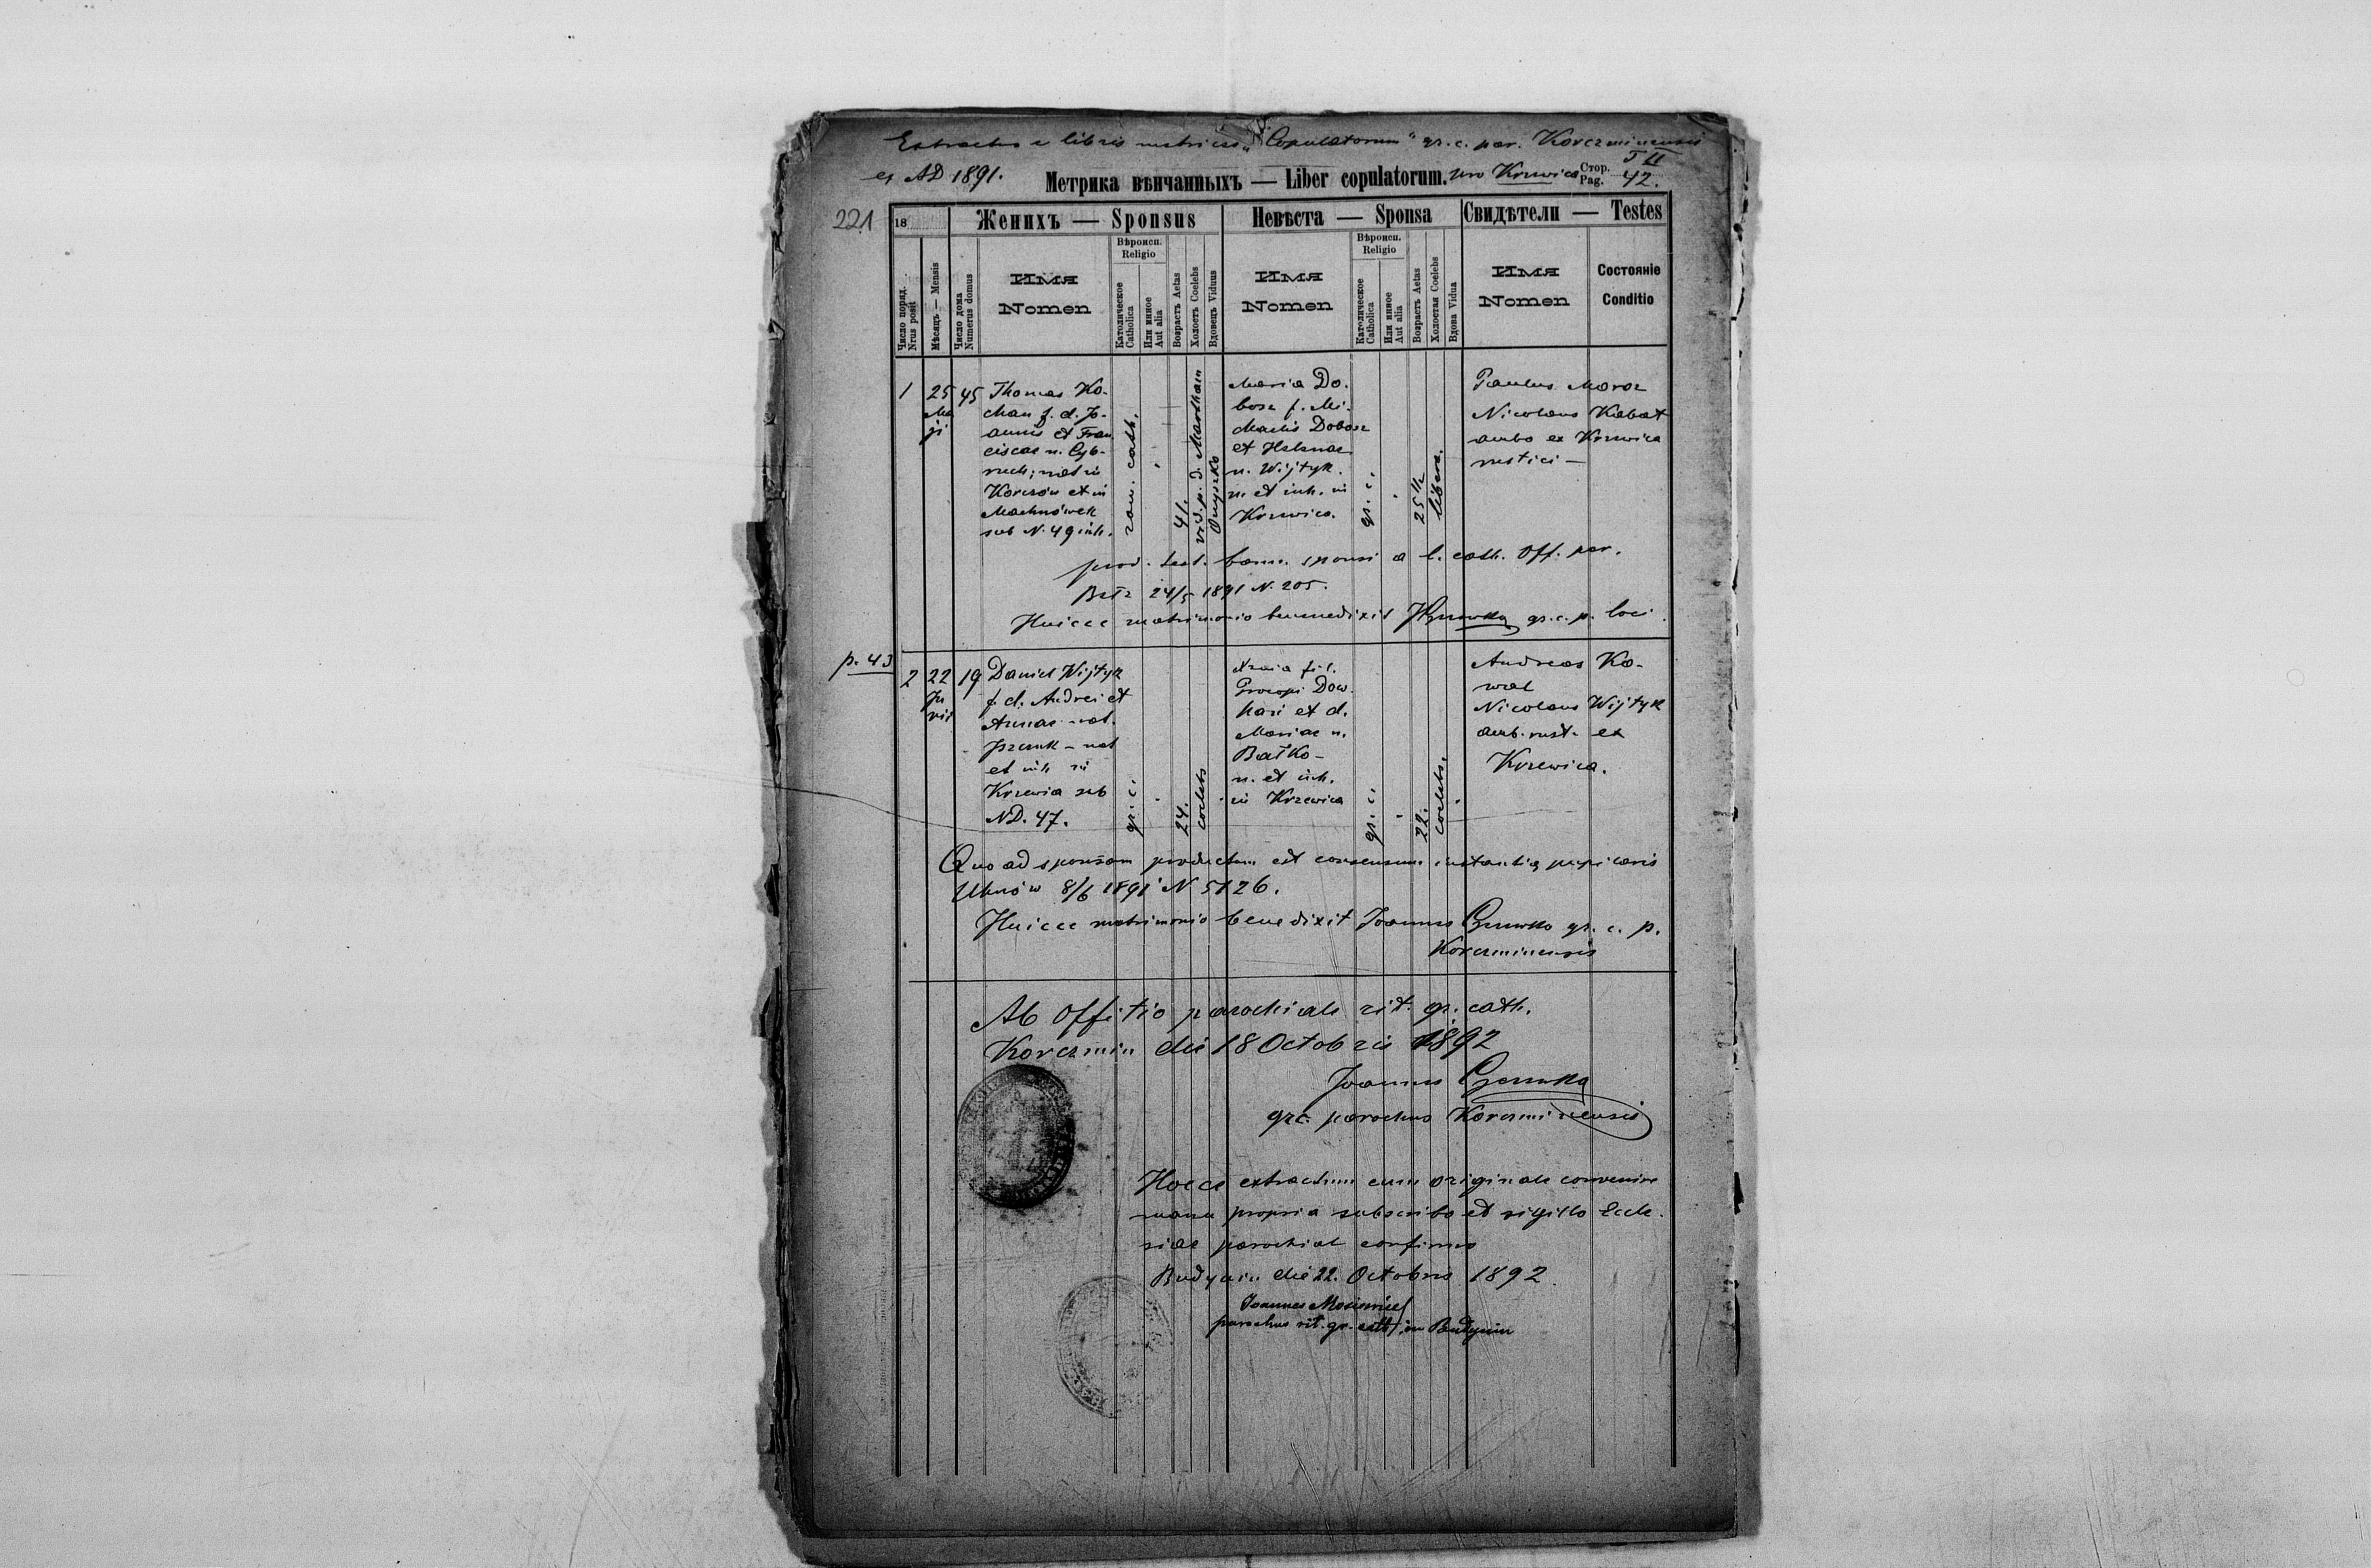 Extractus e libris metrices "Copulatorum" gr. c. par. Korczminensis
ex AD 1891.
Метрика вѣнчанныхъ — Liber copulatorum.
pro Krzewica
Стор.
Pag.
T II
42.
221
18
Женихъ — Sponsus
Невѣста — Sponsa
Свидѣтели — Testes
Число поряд.
Nrus posit
Мѣсяць — Mensis
Число дома
Numerus domus
Имя
Nomen
Вѣроисп.
Religio
Католическое
Catholica
Или инное
Aut alia
Возрастъ Aetas
Холостъ Coelebs
Вдовець Viduus
Имя
Nomen
Вѣроисп.
Religio
Католическое
Catholica
Или инное
Aut alia
Возрастъ Aetas
Холостая Coelebs
Вдова Vidua
Имя
Nomen
Состояніе
Conditio
1
25
Ma
ji
45
Thomas Ko-
chan f. d. Jo-
annis et Fran
ciscae n. Cyb-
ruch; nat in
Korczów et in
Machnówek
sub N. 49 inh.
rom. cath.
41.
vid. p. d. Martham
Onyszko
Maria Do-
bosz f. Mi-
chaelis Dobosz
et Helenae
n. Wijtyk.
n. et inh. in
Krzewica.
gr. c.
25 1/2
libera.
Paulus Moroz
Nicolaus Kabat
ambo ex Krzewica
rustici —
prod. test. bann. sponsi a l. cath. Off. par.
Bełz 24/5 1891 N. 205.
Huicce matrimonio benedixit gr. c. p. loci.
p. 43
2
22
Ju
nii
19
Daniel Wijtyk
f. d. Andrei et
Annae nat.
et inh in
Krzewia sub
ND. 47.
gr. c.
24.
coelebs
Procopi Dow
hari et d.
Mariae n.
Bałko -
n. et inh.
in Krzewica
gr. c.
22.
coelebs.
Andreas Ko-
wal
Nicolaus Wijtyk
amb. rust. ex
Krzewica.
Quo ad sponsam productum est consensum instantia pupilaris
Uhnów 8/6 1891 N 5126.
Huicce matrimonio benedixit Joannes gr. c. p.
Korczminensis
Ab Offitio parochiale rit. gr. cath.
Korczmin die 18 Octobris 1892
Joannes
gr c. parochus Korczminensis
Hocce extractum cum originale convenire
manu propria subscribo et sigillo Eccle-
siae parochial confirmo
Budynin die 22. Octobris 1892.
Joannes
parochus rit. gr. cath. in Budynin